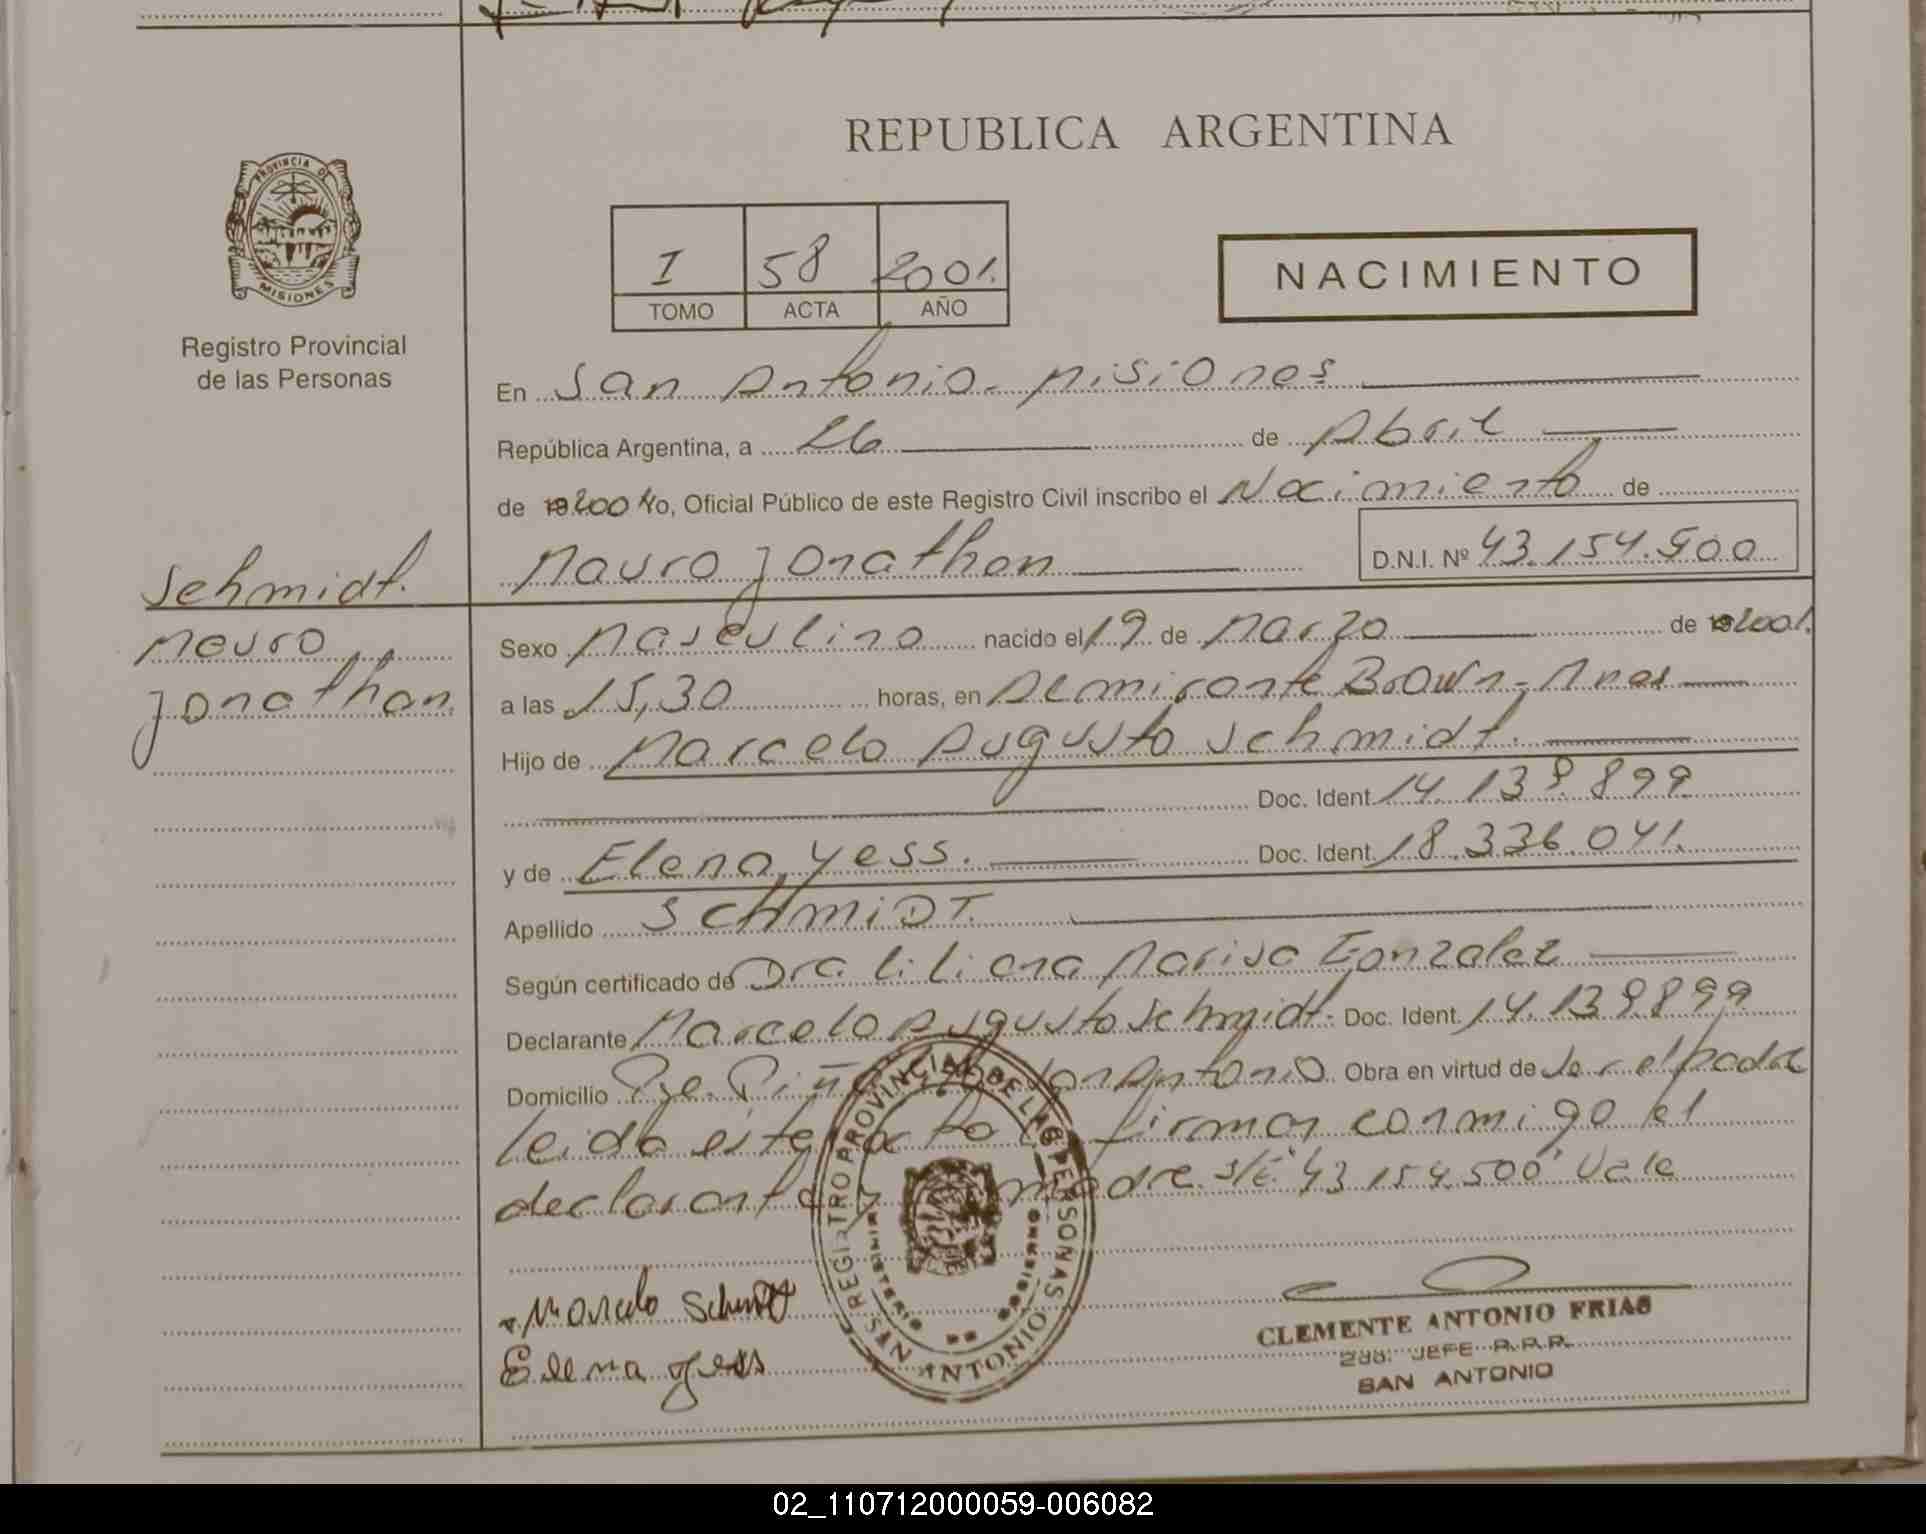 REPUBLICA ARGENTINA
PROVINCIA DE
MISIONES
Registro Provincial
de las Personas
I 58 2001.
TOMO ACTA AÑO
NACIMIENTO
En San Antonio - Misiones
República Argentina, a 26 de Abril
de 192001 Yo, Oficial Público de este Registro Civil inscribo el Nacimiento de
Mauro Jonathan D.N.I. Nº 43.154.500
Schmidt.
Mauro
Jonathan
Sexo Masculino nacido el 19 de Marzo de 192001.
a las 15,30 horas, en Almirante Brown - Mnes
Hijo de Marcelo Augusto Schmidt.
Doc. Ident. 14.139.899
y de Elena Yess. Doc. Ident. 18.336.041.
Apellido SCHMIDT.
Según certificado de Dra. Liliana Marisa Gonzalez
Declarante Marcelo Augusto Schmidt. Doc. Ident. 14.139.899
Domicilio Pje. San Antonio Obra en virtud de ser el padre
leida este acta firman conmigo el
declarante y madre s/E "43.154.500" Vale
Marcelo Schmidt
Elena Yess
REGISTRO PROVINCIAL DE LAS PERSONAS
MINISTERIO DE GOBIERNO
SAN ANTONIO
CLEMENTE ANTONIO FRIAS
JEFE R.P.P.
SAN ANTONIO
02_110712000059-006082